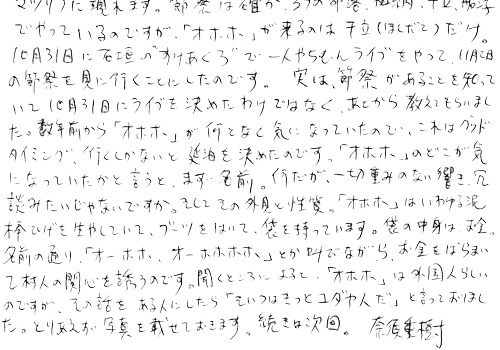 マツリ)に現れます。節祭は確か、3つの部落、
でやっているのですが、「オホホ」が来るのは干立(ほしだて)だけ。
10月31日に石垣の"すけあくろ"で一人やちむんライブをやって、11月2日
の節祭を見に行くことにしたのです。 実は、節祭があることを知って
いて10月31日にライブを決めたわけではなく、あとから教えてもらいまし
た。数年前から「オホホ」が何となく気になっていたので、これはグッド
タイミング、行くしかないと延泊を決めたのです。「オホホ」のどこが気
になっていたかと言うと、まず名前。何だか、一切重みのない響き、冗
談みたいじゃないですか。そしてその外見と性質。「オホホ」はいわゆる泥
棒ひげを生やしていて、ブーツをはいて、袋を持っています。袋の中身はお金。
名前の通り、「オーホホ、オーホホホホ」とか叫びながら、お金をばらまい
て村人の関心を誘うのです。聞くところによると、「オホホ」は外国人らしい
のですが、その話をある人にしたら「そいつはきっとユダヤ人だ」と言っておりまし
た。とりあえず写真を載せておきます。続きは次回。 奈須重樹